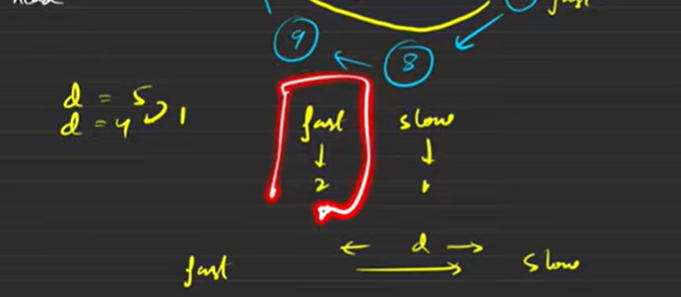 fast
9
8
d = 5
d = 4
1
fast slow
2 1
d
fast slow